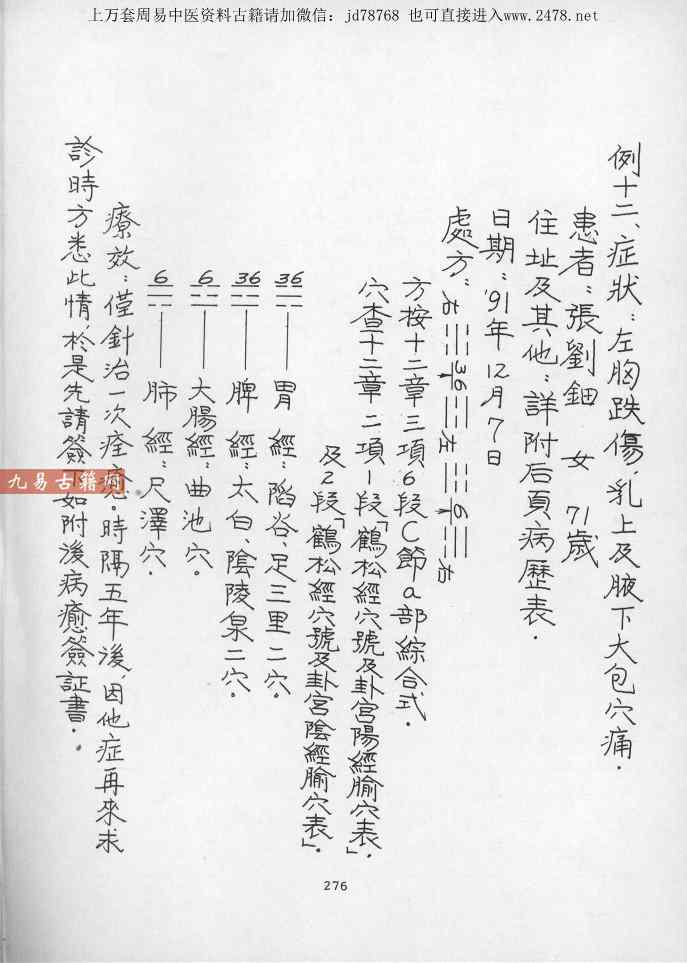 上万套周易中医资料古籍请加微信：jd78768 也可直接进入www.2478.net
例十二、症狀：左胸跌傷，乳上及腋下大包穴痛．
患者：張劉鈿 女 71歲
住址及其他：詳附后頁病歷表．
日期：'91年12月7日
處方：右 36 左 6 右
方按十二章三項6段C節a部綜合式．
穴查十二章二項1段「鶴松經穴號及卦宮陽經腧穴表」．
及2段「鶴松經穴號及卦宮陰經腧穴表」．
36 胃經：陷谷、足三里二穴．
36 脾經：太白、陰陵泉二穴．
6 大腸經：曲池穴．
6 肺經：尺澤穴．
療效：僅針治一次痊癒．時隔五年後，因他症再來求
診時方悉此情，於是先請簽下如附後病癒簽証書．
九易古籍网
276